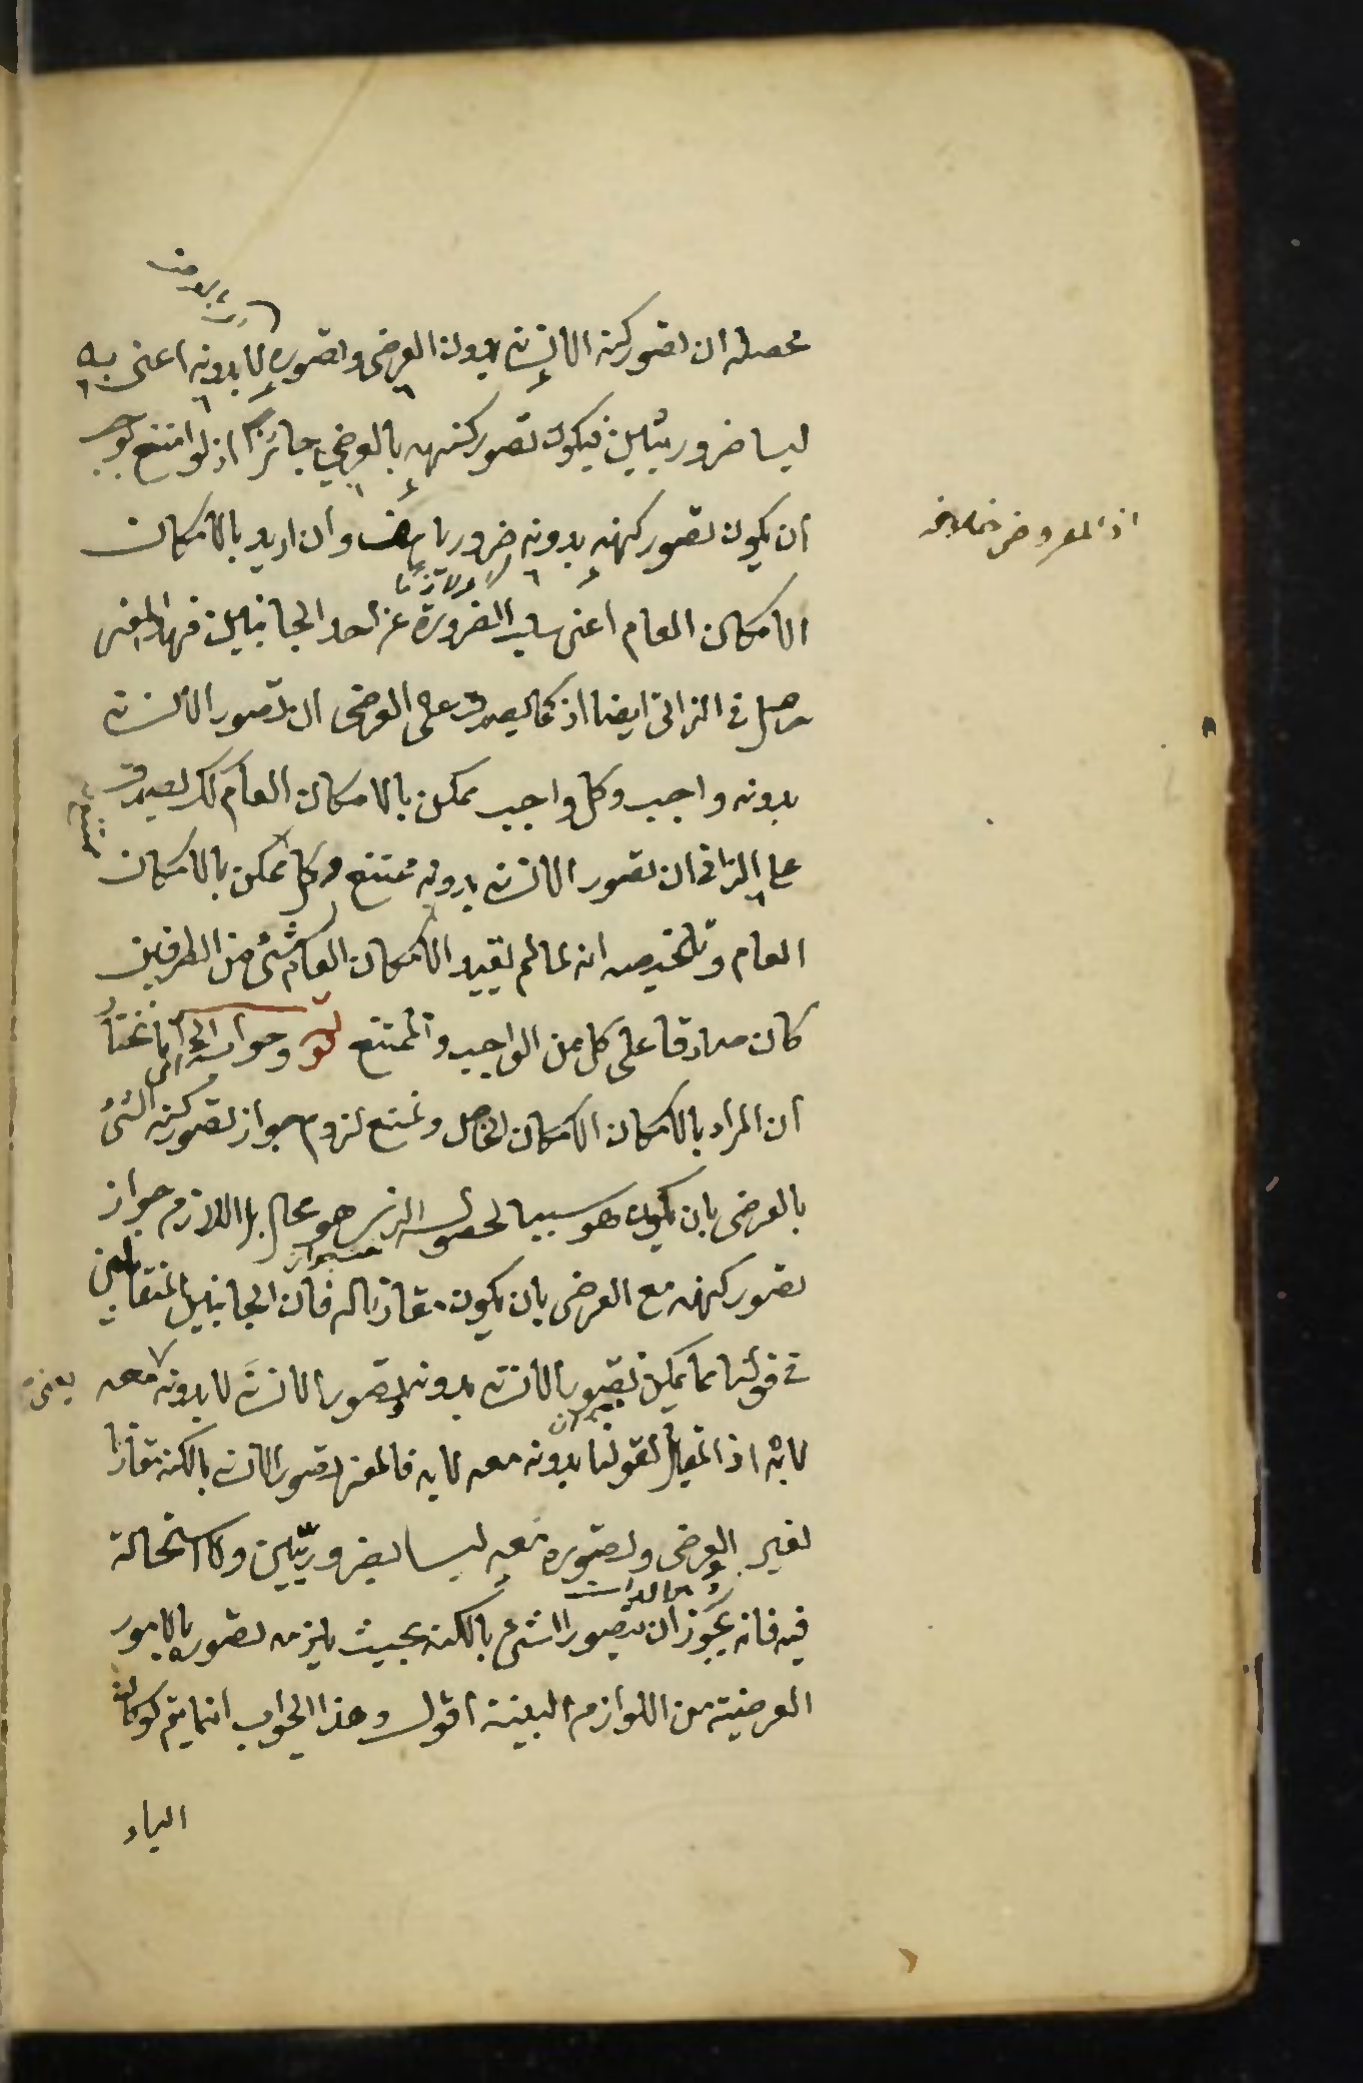 محصله ان تصور كنه الانسان بدون العرضى وتصوره لا بدونه اعنى به
ليسا ضروريتين فيكون تصور كنهه بالعرضى جائزا اذ لو امتنع لوجب
ان يكون تصور كنهه بدونه ضروريا هف وان اريد بالامكان
اذ المفروض خلافه
الامكان العام اعنى سلب الضرورة عن احد الجانبين فهذا المعنى
حاصل فى الذاتى ايضا اذ كما يصدق على العرضى ان تصور الانسان
بدونه واجب وكل واجب ممكن بالامكان العام كك يصدق
على الذاتى ان تصور الانسان بدونه ممتنع وكل ممكن بالامكان
العام وتلخيصه انه لما لم يقيد الامكان العام بشئ من الطرفين
كان صادقا على كل من الواجب والممتنع قوله وجوابه انا نختار
ان المراد بالامكان الامكان الخاص ونمنع لزوم جواز تصور كنه الشئ
بالعرضى بان يكون هو سببا لحصوله الذى هو محال بل اللازم جواز
تصور كنهه مع العرضى بان يكون مقارنا له فان الجانبين المتقابلين
فى قولنا مما يمكن تصور الانسان بدونه تصور الانسان لا بدونه معه
لا به اذ المقابل لقولنا بدونه معه لا به فالمعنى تصور الانسان بالكنه مقارنا
لغير العرضى وتصوره معه ليسا بضروريين ولا استحالة
فيه فانه يجوز ان يتصور الشئ بالكنه بحيث يلزمه تصوره بالامور
العرضية من اللوازم البينة اقول وهذا الجواب انما يتم لو كان
الباء